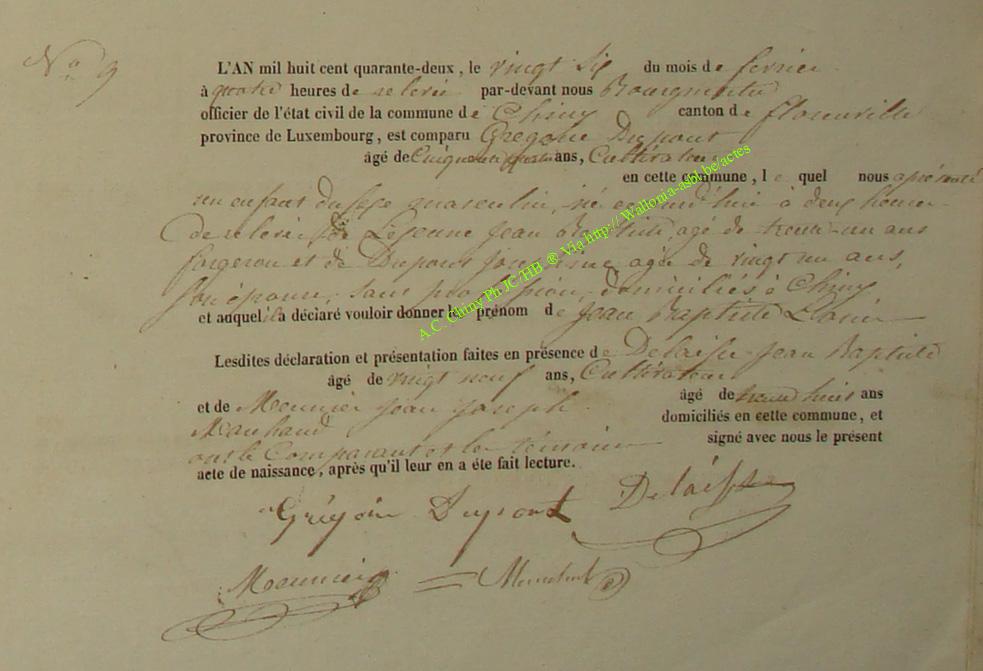 No 9
L'AN mil huit cent quarante-deux, le vingt six du mois de fevrier
à quatre heures de relevée par-devant nous Bourgmestre
officier de l'état civil de la commune de Chiny canton de florenville
province de Luxembourg, est comparu Grégoire Dupont
âgé de Cinquante ans, Cultivateur
en cette commune, le quel nous a présenté
un enfant du sexe masculin, né aujourd'hui à deux heures
de relevée de Lejeune Jean Baptiste, agé de trente-un ans
forgeron et de Dupont agée de vingt un ans,
son épouse, sans profession, domiciliés à Chiny
et auquel il a déclaré vouloir donner le prénom de Jean Baptiste
Lesdites déclaration et présentation faites en présence de Delaisse Jean Baptiste
âgé de vingt neuf ans, Cultivateur
et de Meunier Jean Joseph âgé de trente huit ans
Marchand domiciliés en cette commune, et
ont le Comparant et les témoins signé avec nous le présent
acte de naissance, après qu'il leur en a été fait lecture.
Grégoire Dupont Delaisse
Meunier
A.C. Chiny Ph JC/HB ® Via http://Wallonia-asbl.be/actes